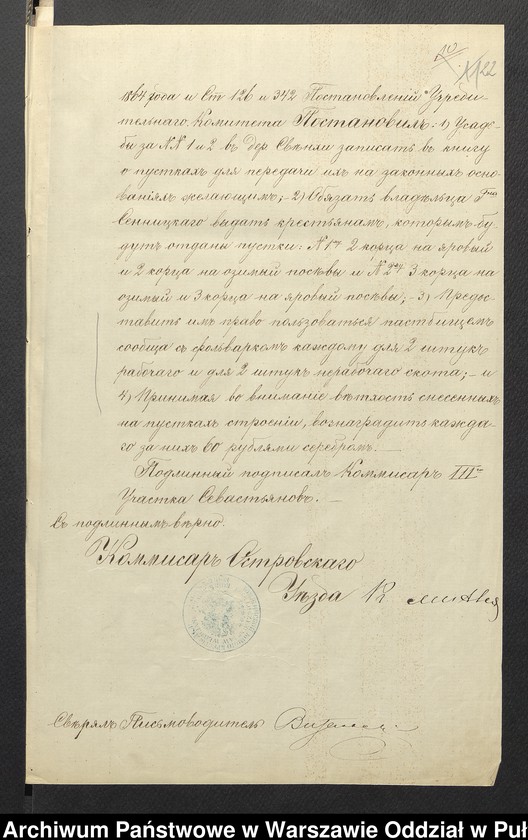 10
22
1864 года и Ст 126 и 342 Постановленій Учреди-
тельнаго Комитета Постановилъ: 1) Усадь-
бы за №№ 1 и 2 въ дер записать въ книгу
о пусткахъ для передачи ихъ на законныхъ осно-
ваніяхъ желающимъ; 2) Обязать владѣльца
Сенницкаго выдать крестьянамъ, которымъ бу-
дутъ отданы пустки: № 1му 2 корца на яровый
и 2 корца на озимый посѣвы и № 2му 3 корца на
озимый и 3 корца на яровый посѣвы; 3) Предос-
тавить имъ право пользоваться пастбищемъ
сообща съ фольваркомъ каждому для 2 штукъ
рабочаго и для 2 штукъ нерабочаго скота; и
4) Принимая во вниманіе ветхость снесенныхъ
на пусткахъ строеній, вознаградить каждо-
го за нихъ 60 рублями серебромъ.
Подлинный подписалъ Коммисаръ III го
Участка Севастьяновъ.
Съ подлиннымъ вѣрно:
Коммисаръ Островскаго
Уѣзда
Свѣрялъ Письмоводитель
Archiwum Państwowe w Warszawie Oddział w Puł